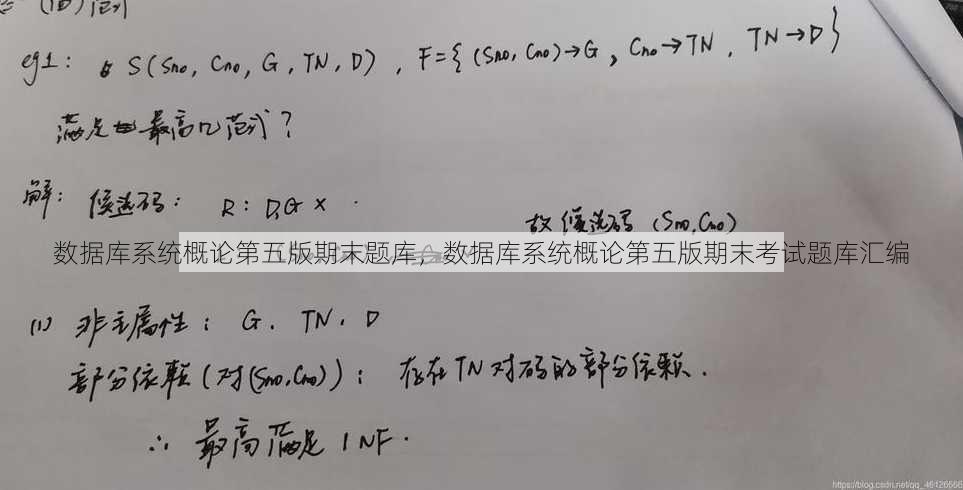 (1白)范式
eg1: S(Sno, Cno, G, TN, D), F={(Sno, Cno)→G, Cno→TN, TN→D}
满足最高几范式?
解: 候选码: R: D,G × 
故候选码 (Sno,Cno)
数据库系统概论第五版期末题库，数据库系统概论第五版期末考试题库汇编
(1) 非主属性: G. TN. D
部分依赖(对(Sno,Cno)): 存在TN对码的部分依赖.
∴ 最高满足1NF.
https://blog.csdn.net/qq_46126566